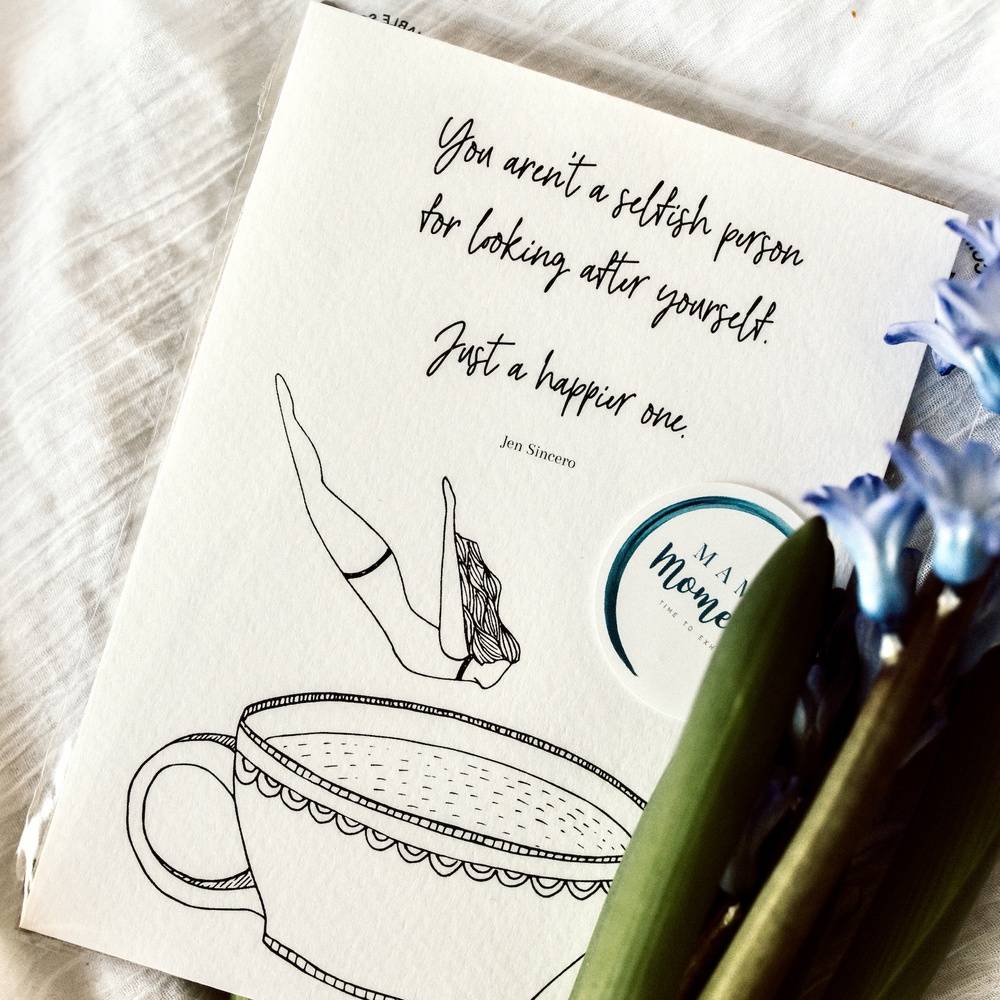 You aren't a selfish person
for looking after yourself.
Just a happier one.
Jen Sincero
MAM
Mome
TIME TO EX